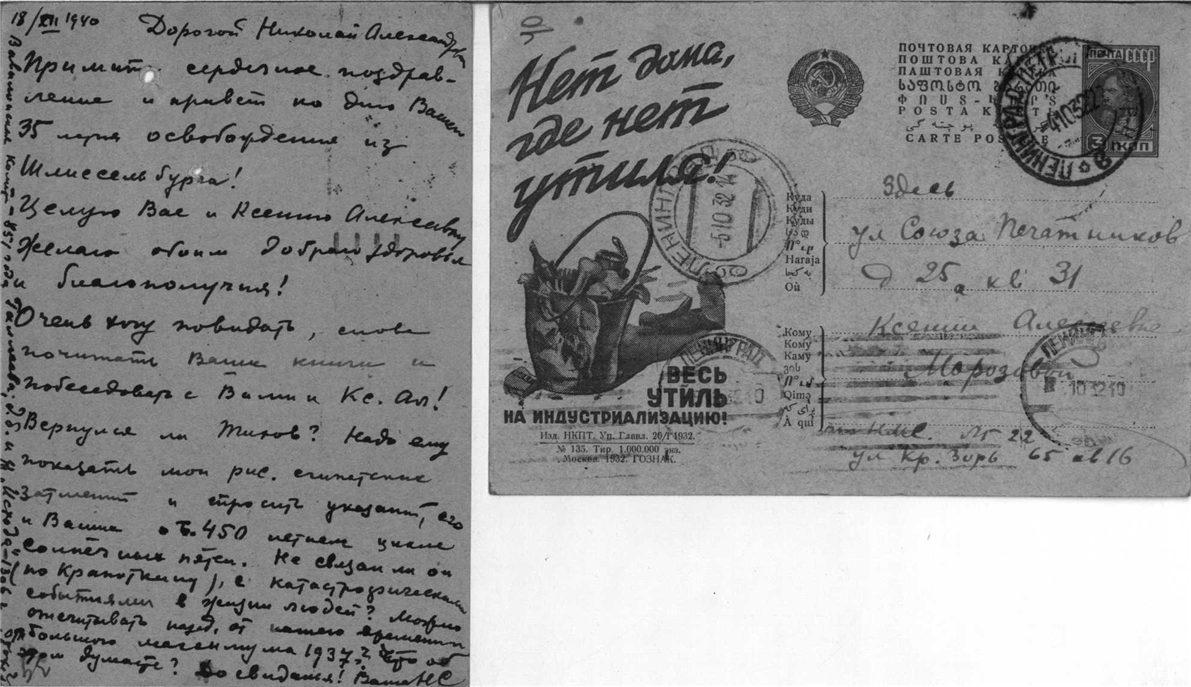 18/XII 1940
Дорогой Николай Александр
Примите сердечное поздрав-
ление и привет ко дню Вашего
35 летия освобождения из
Шлиссельбурга!
Целую Вас и Ксению Алексеевну
Желаю обоим доброго здоровья
и благополучия!
Очень хочу повидать, снова
почитать Ваши книги и
побеседовать с Вами и Кс. Ал!
Вернулся ли Тихов? Надо ему
показать мои рис. египетских
затмений и спросить указаний, его
и Ваших о 450 летнем цикле
солнечных пятен. Не связан ли он
(по Крапоткину), с катастрофическими
событиями в жизни людей? Можно
отсчитывать назад, от нашего времени
большого максимума 1937? Что об
этом думаете? До свиданья! Ваша НС
Нет дома,
где нет
утиля!
ВЕСЬ
УТИЛЬ
НА ИНДУСТРИАЛИЗАЦИЮ!
Изд. НКПТ. Уп. Главл. 20/Т 1932.
№ 135. Тир. 1.000.000 экз.
Москва. 1932. ГОЗНАК.
ПОЧТОВАЯ КАРТОЧКА
ПОШТОВА КА
ПАШТОВАЯ КА
ᲡᲐᲤᲝᲡᲢᲝ
POSTA K
CARTE POSTALE
ПОЧТА СССР
3 КОП
ЛЕНИНГРАД
41032
ЛЕНИНГРАД
-5.10.32.14
Куда
Куди
Куды
სად
Haraja
Où
Здесь
ул Союза Печатников
д 25а кв 31
Кому
Кому
Каму
ვის
Qimə
À qui
Ксении Алексеевне
Морозовой
ЛЕНИНГРАД
ЛЕНИНГ
10 12 10
№ 22
ул Кр. Зорь 65 кв 16